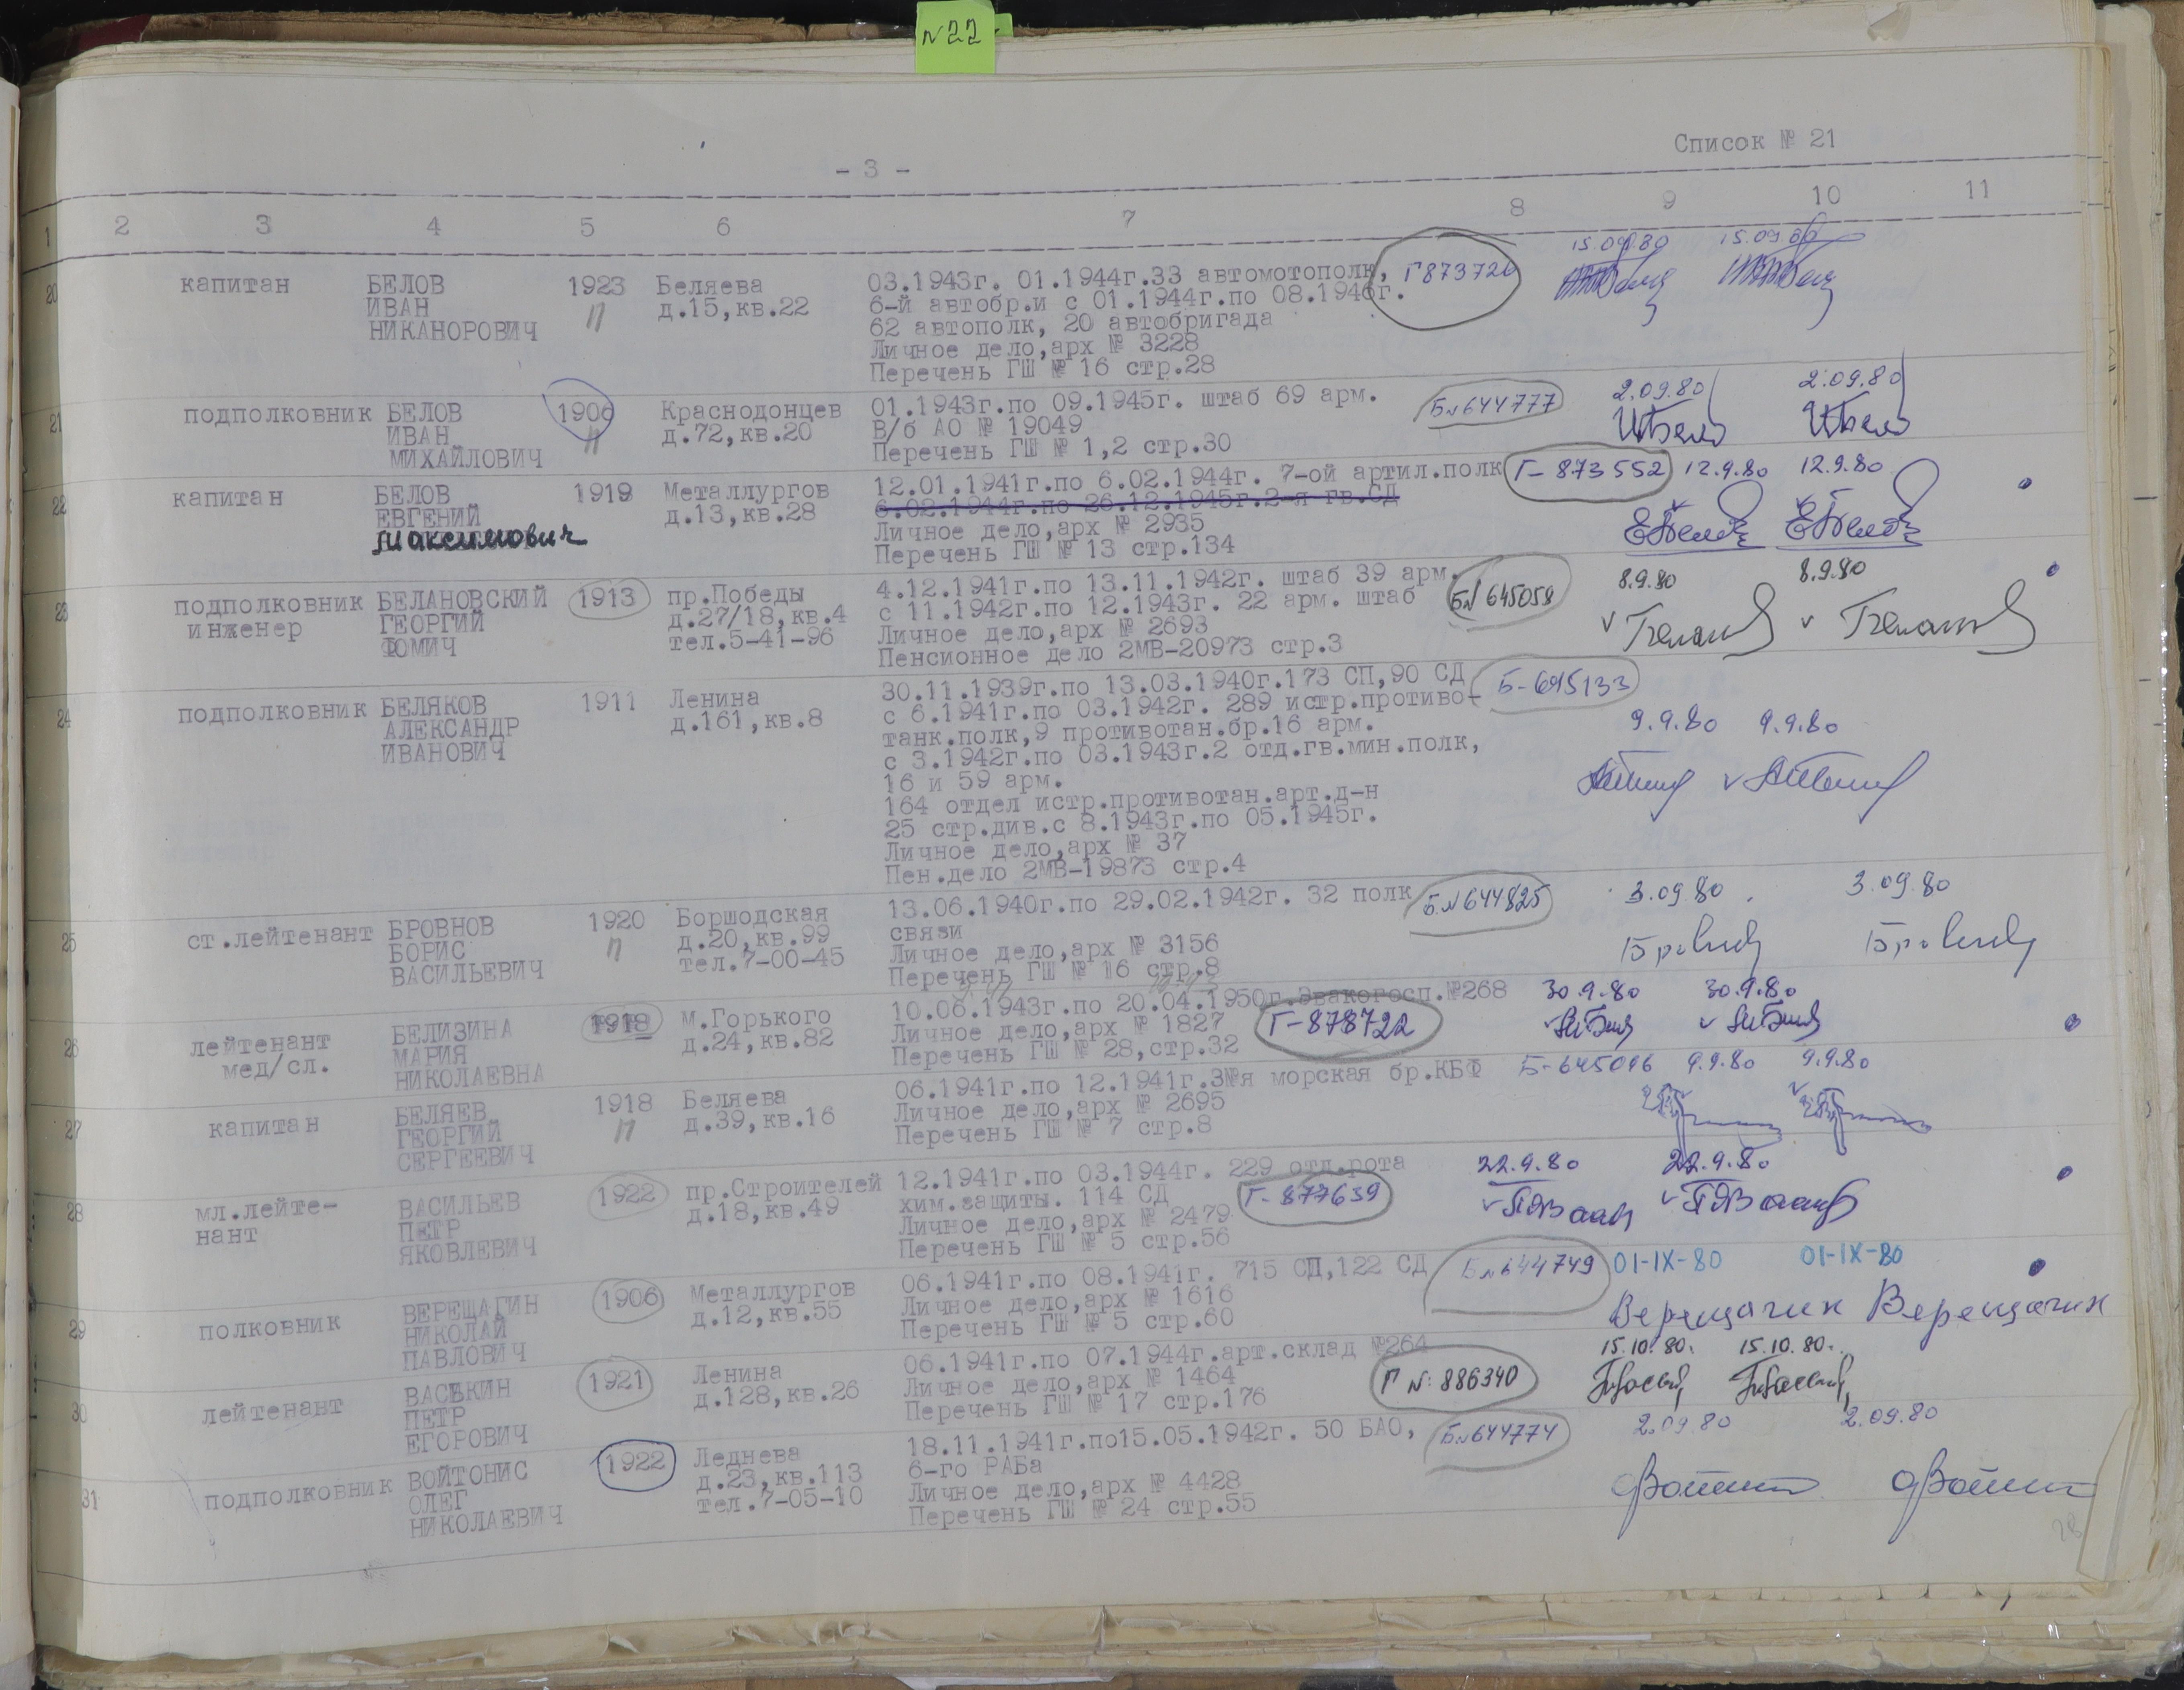 N22
Список № 21
- 3 -
1 2 3 4 5 6 7 8 9 10 11
20 капитан БЕЛОВ 1923 Беляева 03.1943г. 01.1944г.33 автомотополк, Г873720 15.09.80 15.09.80
ИВАН п д.15,кв.22 6-й автобр.и с 01.1944г.по 08.1946г.
НИКАНОРОВИЧ 62 автополк, 20 автобригада
Личное дело,арх № 3228
Перечень ГШ № 16 стр.28
21 подполковник БЕЛОВ 1906 Краснодонцев 01.1943г.по 09.1945г. штаб 69 арм. Б№644777 2.09.80 2.09.80
ИВАН п д.72,кв.20 В/б АО № 19049
МИХАЙЛОВИЧ Перечень ГШ № 1,2 стр.30
22 капитан БЕЛОВ 1919 Металлургов 12.01.1941г.по 6.02.1944г. 7-ой артил.полк Г-873552 12.9.80 12.9.80
ЕВГЕНИЙ д.13,кв.28 6.02.1944г.по 26.12.1945г.2-я гв.СД
Максимович Личное дело,арх № 2935
Перечень ГШ № 13 стр.134
23 подполковник БЕЛАНОВСКИЙ 1913 пр.Победы 4.12.1941г.по 13.11.1942г. штаб 39 арм. Б№645059 8.9.80 8.9.80
инженер ГЕОРГИЙ д.27/18,кв.4 с 11.1942г.по 12.1943г. 22 арм. штаб
ФОМИЧ тел.5-41-96 Личное дело,арх № 2693
Пенсионное дело 2МВ-20973 стр.3
24 подполковник БЕЛЯКОВ 1911 Ленина 30.11.1939г.по 13.03.1940г.173 СП,90 СД Б-645133
АЛЕКСАНДР д.161,кв.8 с 6.1941г.по 03.1942г. 289 истр.противо-
ИВАНОВИЧ танк.полк,9 противотан.бр.16 арм. 9.9.80 9.9.80
с 3.1942г.по 03.1943г.2 отд.гв.мин.полк,
16 и 59 арм.
164 отдел истр.противотан.арт.д-н
25 стр.див.с 8.1943г.по 05.1945г.
Личное дело,арх № 37
Пен.дело 2МВ-19873 стр.4
25 ст.лейтенант БРОВНОВ 1920 Боршодская 13.06.1940г.по 29.02.1942г. 32 полк Б№644825 3.09.80 3.09.80
БОРИС п д.20,кв.99 связи
ВАСИЛЬЕВИЧ тел.7-00-45 Личное дело,арх № 3156
Перечень ГШ № 16 стр.8
26 лейтенант БЕЛИЗИНА 1918 М.Горького 10.06.1943г.по 20.04.1950г.Эвакогосп.№268 30.9.80 30.9.80
мед/сл. МАРИЯ д.24,кв.82 Личное дело,арх № 1827 Г-878722
НИКОЛАЕВНА Перечень ГШ № 28,стр.32
27 капитан БЕЛЯЕВ 1918 Беляева 06.1941г.по 12.1941г.3№я морская бр.КБФ Б-645096 9.9.80 9.9.80
ГЕОРГИЙ п д.39,кв.16 Личное дело,арх № 2695
СЕРГЕЕВИЧ Перечень ГШ № 7 стр.8
28 мл.лейте- ВАСИЛЬЕВ 1922 пр.Строителей 12.1941г.по 03.1944г. 229 отд.рота 22.9.80 22.9.80
нант ПЕТР д.18,кв.49 хим.защиты. 114 СД Г-877639
ЯКОВЛЕВИЧ Личное дело,арх № 2479
Перечень ГШ № 5 стр.56
29 полковник ВЕРЕЩАГИН 1906 Металлургов 06.1941г.по 08.1941г. 715 СП,122 СД Б№644749 01-IX-80 01-IX-80
НИКОЛАЙ д.12,кв.55 Личное дело,арх № 1616 Верещагин Верещагин
ПАВЛОВИЧ Перечень ГШ № 5 стр.60
30 лейтенант ВАСЬКИН 1921 Ленина 06.1941г.по 07.1944г.арт.склад №264 15.10.80. 15.10.80.
ПЕТР д.128,кв.26 Личное дело,арх № 1464 Г №: 886340
ЕГОРОВИЧ Перечень ГШ № 17 стр.176
31 подполковник ВОЙТОНИС 1922 Леднева 18.11.1941г.по15.05.1942г. 50 БАО, Б№644774 2.09.80 2.09.80
ОЛЕГ д.23,кв.113 6-го РАБа
НИКОЛАЕВИЧ тел.7-05-10 Личное дело,арх № 4428
Перечень ГШ № 24 стр.55